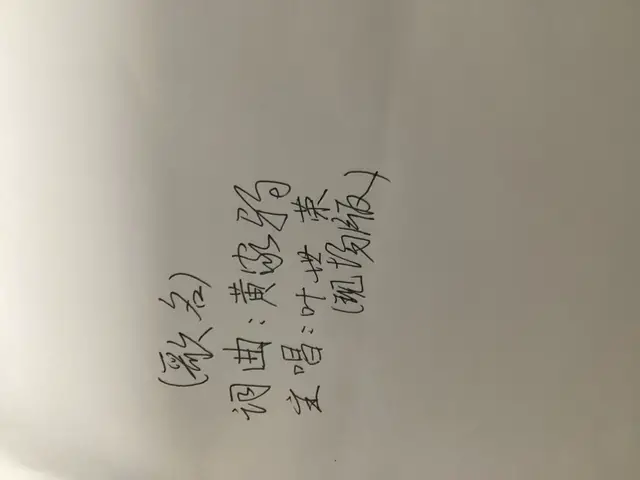 (歌名)
词曲:黄家驹
主唱:叶世荣
(现场版)